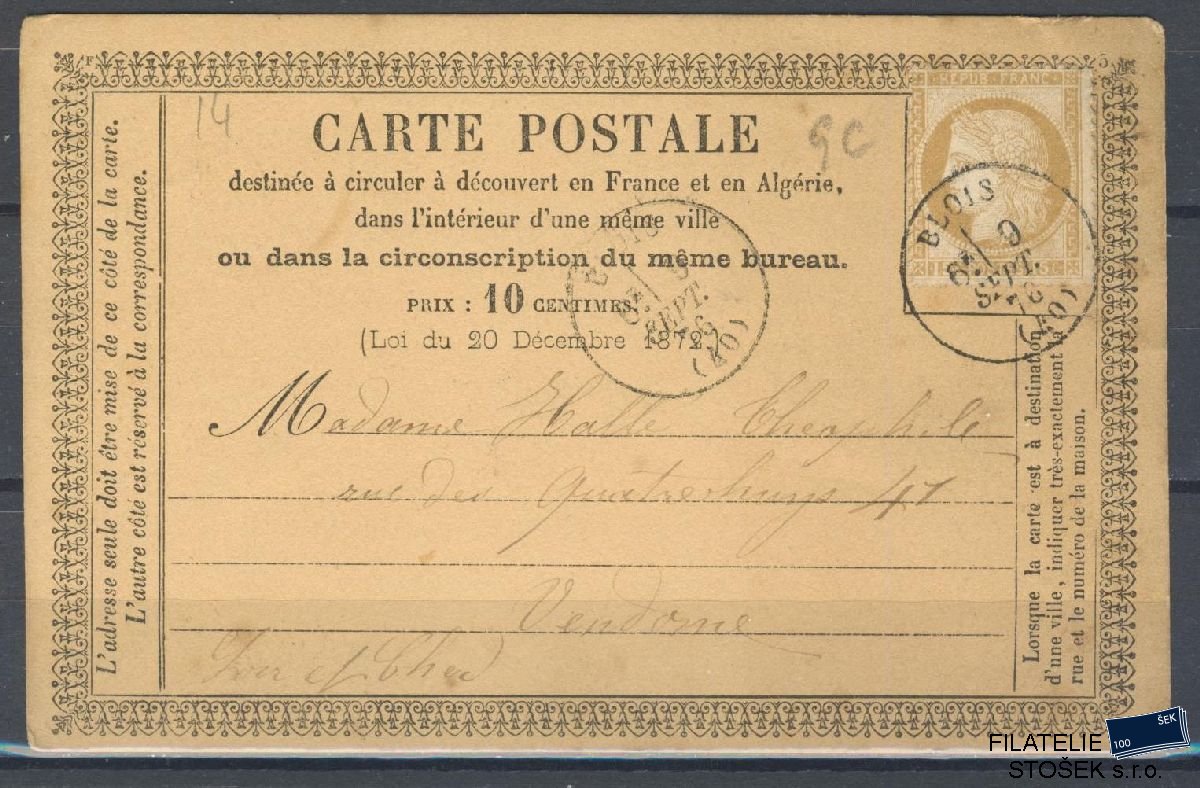 14
GC
F
5
REPUB FRANC
CARTE POSTALE
destinée à circuler à découvert en France et en Algérie,
dans l'intérieur d'une même ville
ou dans la circonscription du même bureau.
PRIX : 10 CENTIMES.
(Loi du 20 Décembre 1872.)
BLOIS
6E
9
SEPT.
76
(40)
BLOIS
6E
9
SEPT.
76
(40)
L'adresse seule doit être mise de ce côté de la carte.
L'autre côté est réservé à la correspondance.
Madame Halle
rue des 41
Vendome
Loir et Cher
Lorsque la carte est à destination
d'une ville, indiquer très-exactement la
rue et le numéro de la maison.
ŠEK
100
FILATELIE
STOŠEK s.r.o.